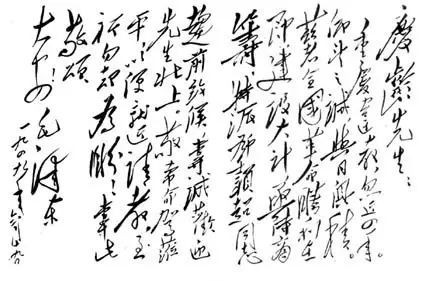 慶齡先生：
重慶違教，忽近四年。
仰望之誠，與日俱積。
茲者全國革命勝利在
即，建設大計，亟待商
籌，特派鄧穎超同志
趨前致候，專誠歡迎
先生北上。敬希命駕蒞
平，以便就近請教，至
祈勿却為盼！專此
敬頌
大安！毛澤東
一九四九年六月十九日